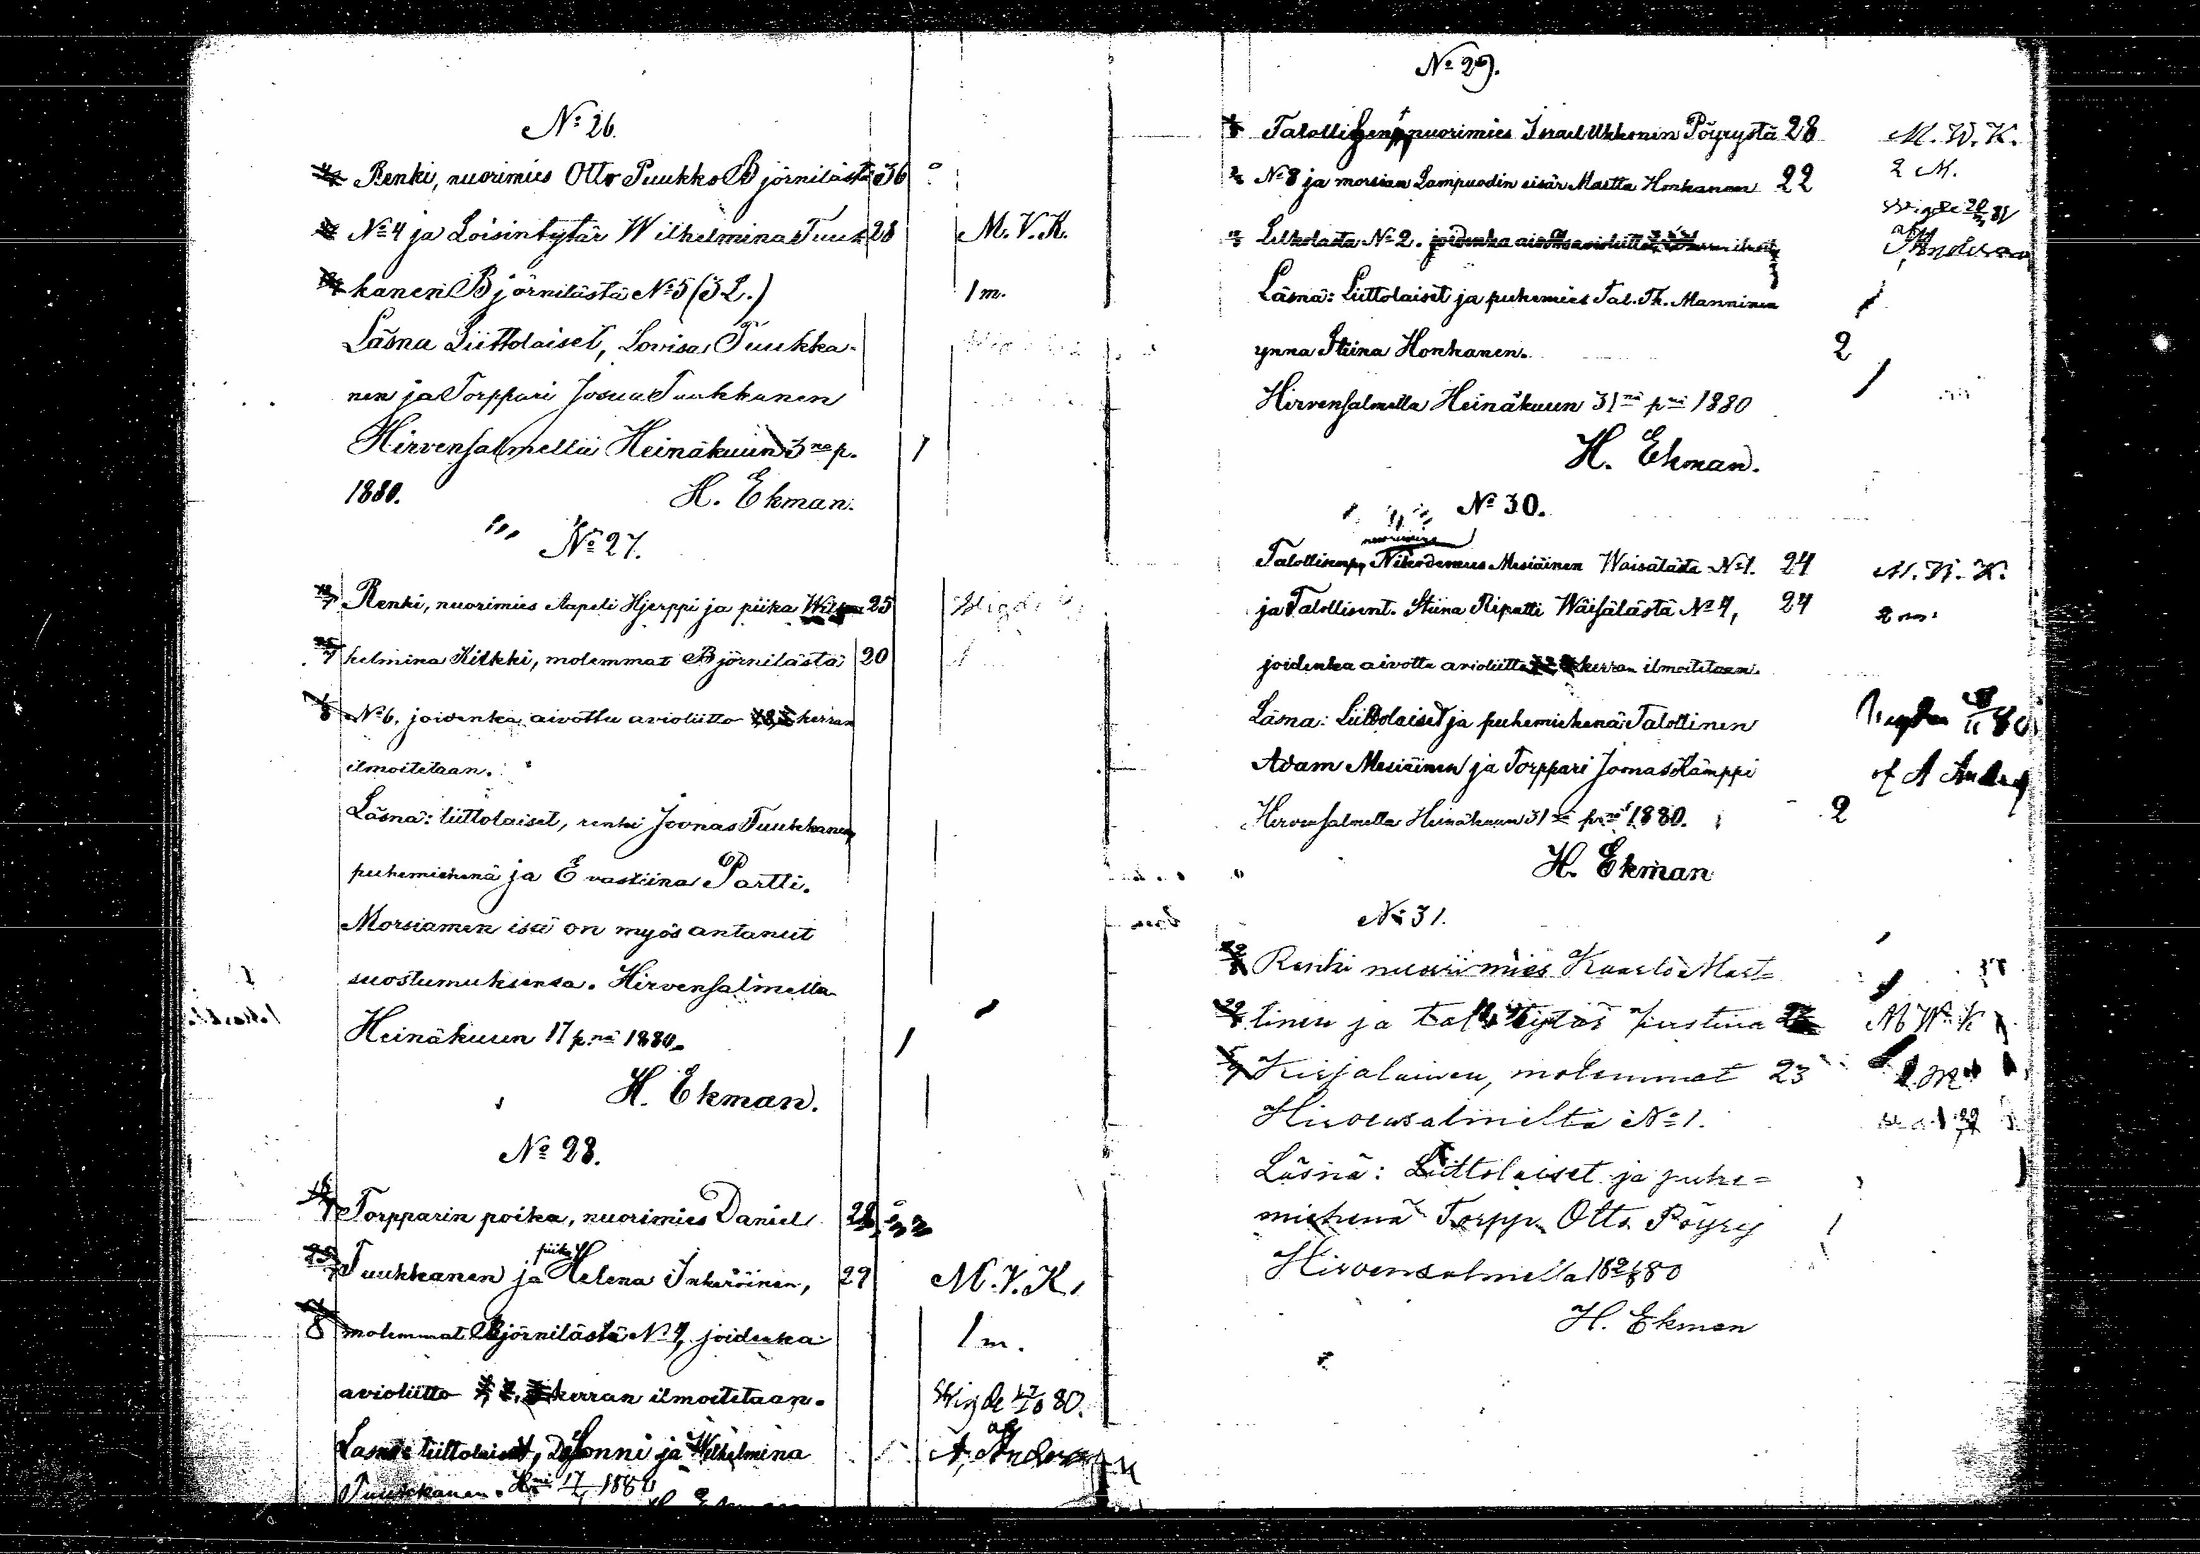 No 26.
Renki, nuorimies Otto Puukko Björnilästä 36
No 4 ja Loisintytär Wilhelmina Tuuk 28
kanen Björnilästä No 5 (32.)
M. V. K.
1 m.
Läsnä Liittolaiset, Lovisa Tuukka-
nen ja Torppari Josua Tuukkanen
Hirvensalmella Heinäkuun 3 na p.
1880. H. Ekman.
No 27.
Renki, nuorimies Aapeli Hjerppi ja piika Wil 25
helmina Kilkki, molemmat Björnilästä 20
No 6. joidenka aivottu avioliitto kerran
ilmoitetaan.
Läsnä: liittolaiset, renki Joonas Tuukkanen
puhemiehenä ja Evastiina Partti.
Morsiamen isä on myös antanut
suostumuksensa. Hirvensalmella
Heinäkuun 17 p nä 1880.
H. Ekman.
No 28.
Torpparin poika, nuorimies Daniel
Tuukkanen ja piika Helena Inkeröinen, 29
molemmat Björnilästä No 4, joidenka
avioliitto kerran ilmoitetaan.
M. V. K.
1 m.
Wigde 80.
af
A. Anders
Läsnä liittolaiset, ja Wilhelmina
Tuukkanen. 17
No 29.
Talollisenp nuorimies Israel Ukkonen Pöyrystä 28
No 8 ja morsian Lampuodin sisär Martta Honkanen 22
Lelkolasta No 2. joidenka avioliitto
M. W. K.
2 M.
Läsnä: Liittolaiset ja puhemies Tal. Th. Manninen
ynnä Stiina Honkanen. 2
Hirvensalmella Heinäkuun 31 nä p nä 1880
H. Ekman.
No 30.
nuorimies
Talollisenp. Nikodemus Mesiäinen Waisälästä No 1. 24
ja Talollisent. Stiina Ripatti Wäisälästä No 4, 24
joidenka aivottu avioliitto kerran ilmoitetaan.
2 m.
Läsnä: Liittolaiset ja puhemiehenä Talollinen
Adam Mesiäinen ja Torppari Joonas Hämppi
Hirvensalmella Heinäkuun 31 p nä 1880. 2
H. Ekman
No 31.
Renki nuorimies Kaarlo Mart=
tinen ja tytär
Kirjalainen, molemmat 23
Hirvensalmelta No 1.
Läsnä: Liittolaiset ja puhe=
miehenä Torpp. Otto Pöyry
Hirvensalmella 80
H. Ekman